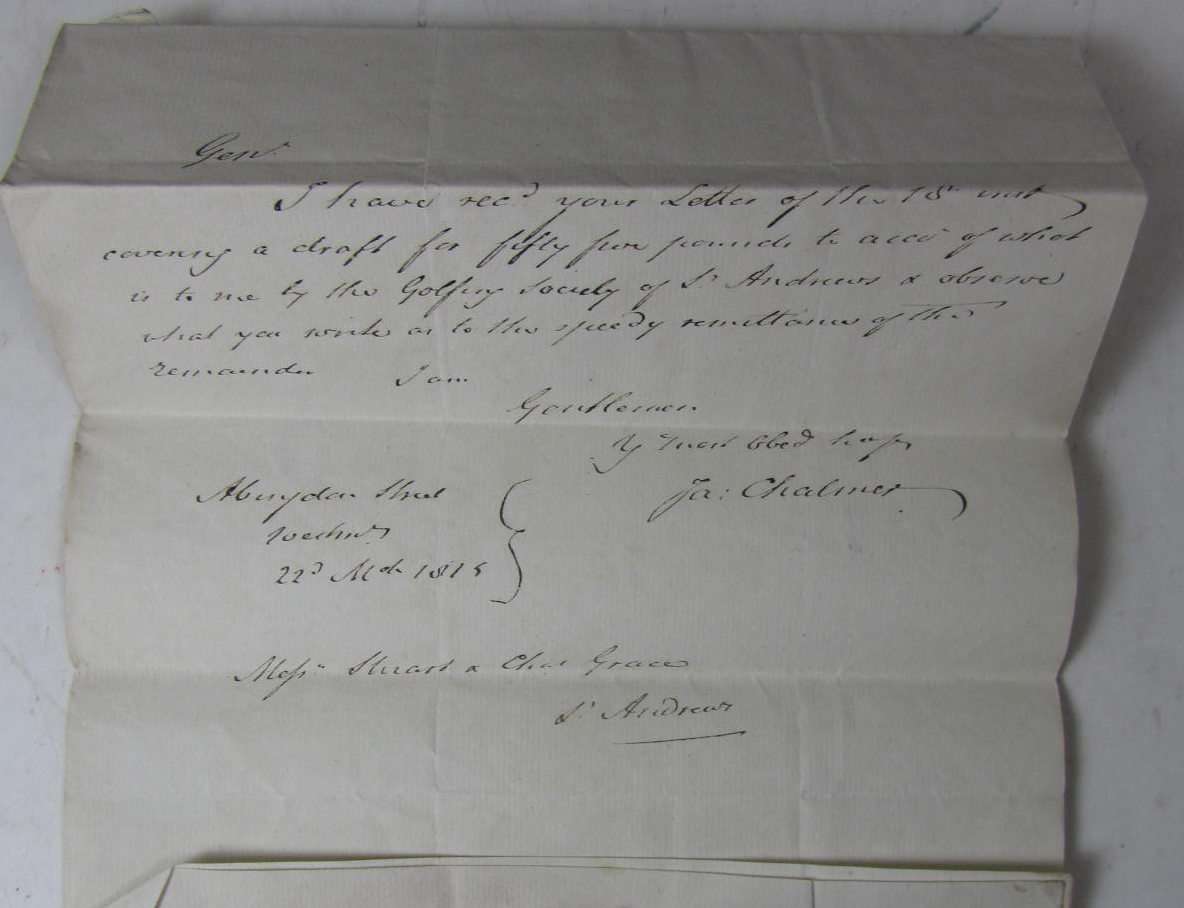 Gen^n.
I have rec^d. your Letter of the 18 inst
covering a draft for fifty five pounds to acco^t of what
is to me by the Golfing Society of S^t Andrews & observe
what you write as to the speedy remittance of the
remainder I am
Gentlemen
Y^r most Obed^t
Ja: Chalmer
Abingdon Street
Westm^r
22^d Mch 1815
Mess^rs Stuart & Chas Grace
S^t Andrews